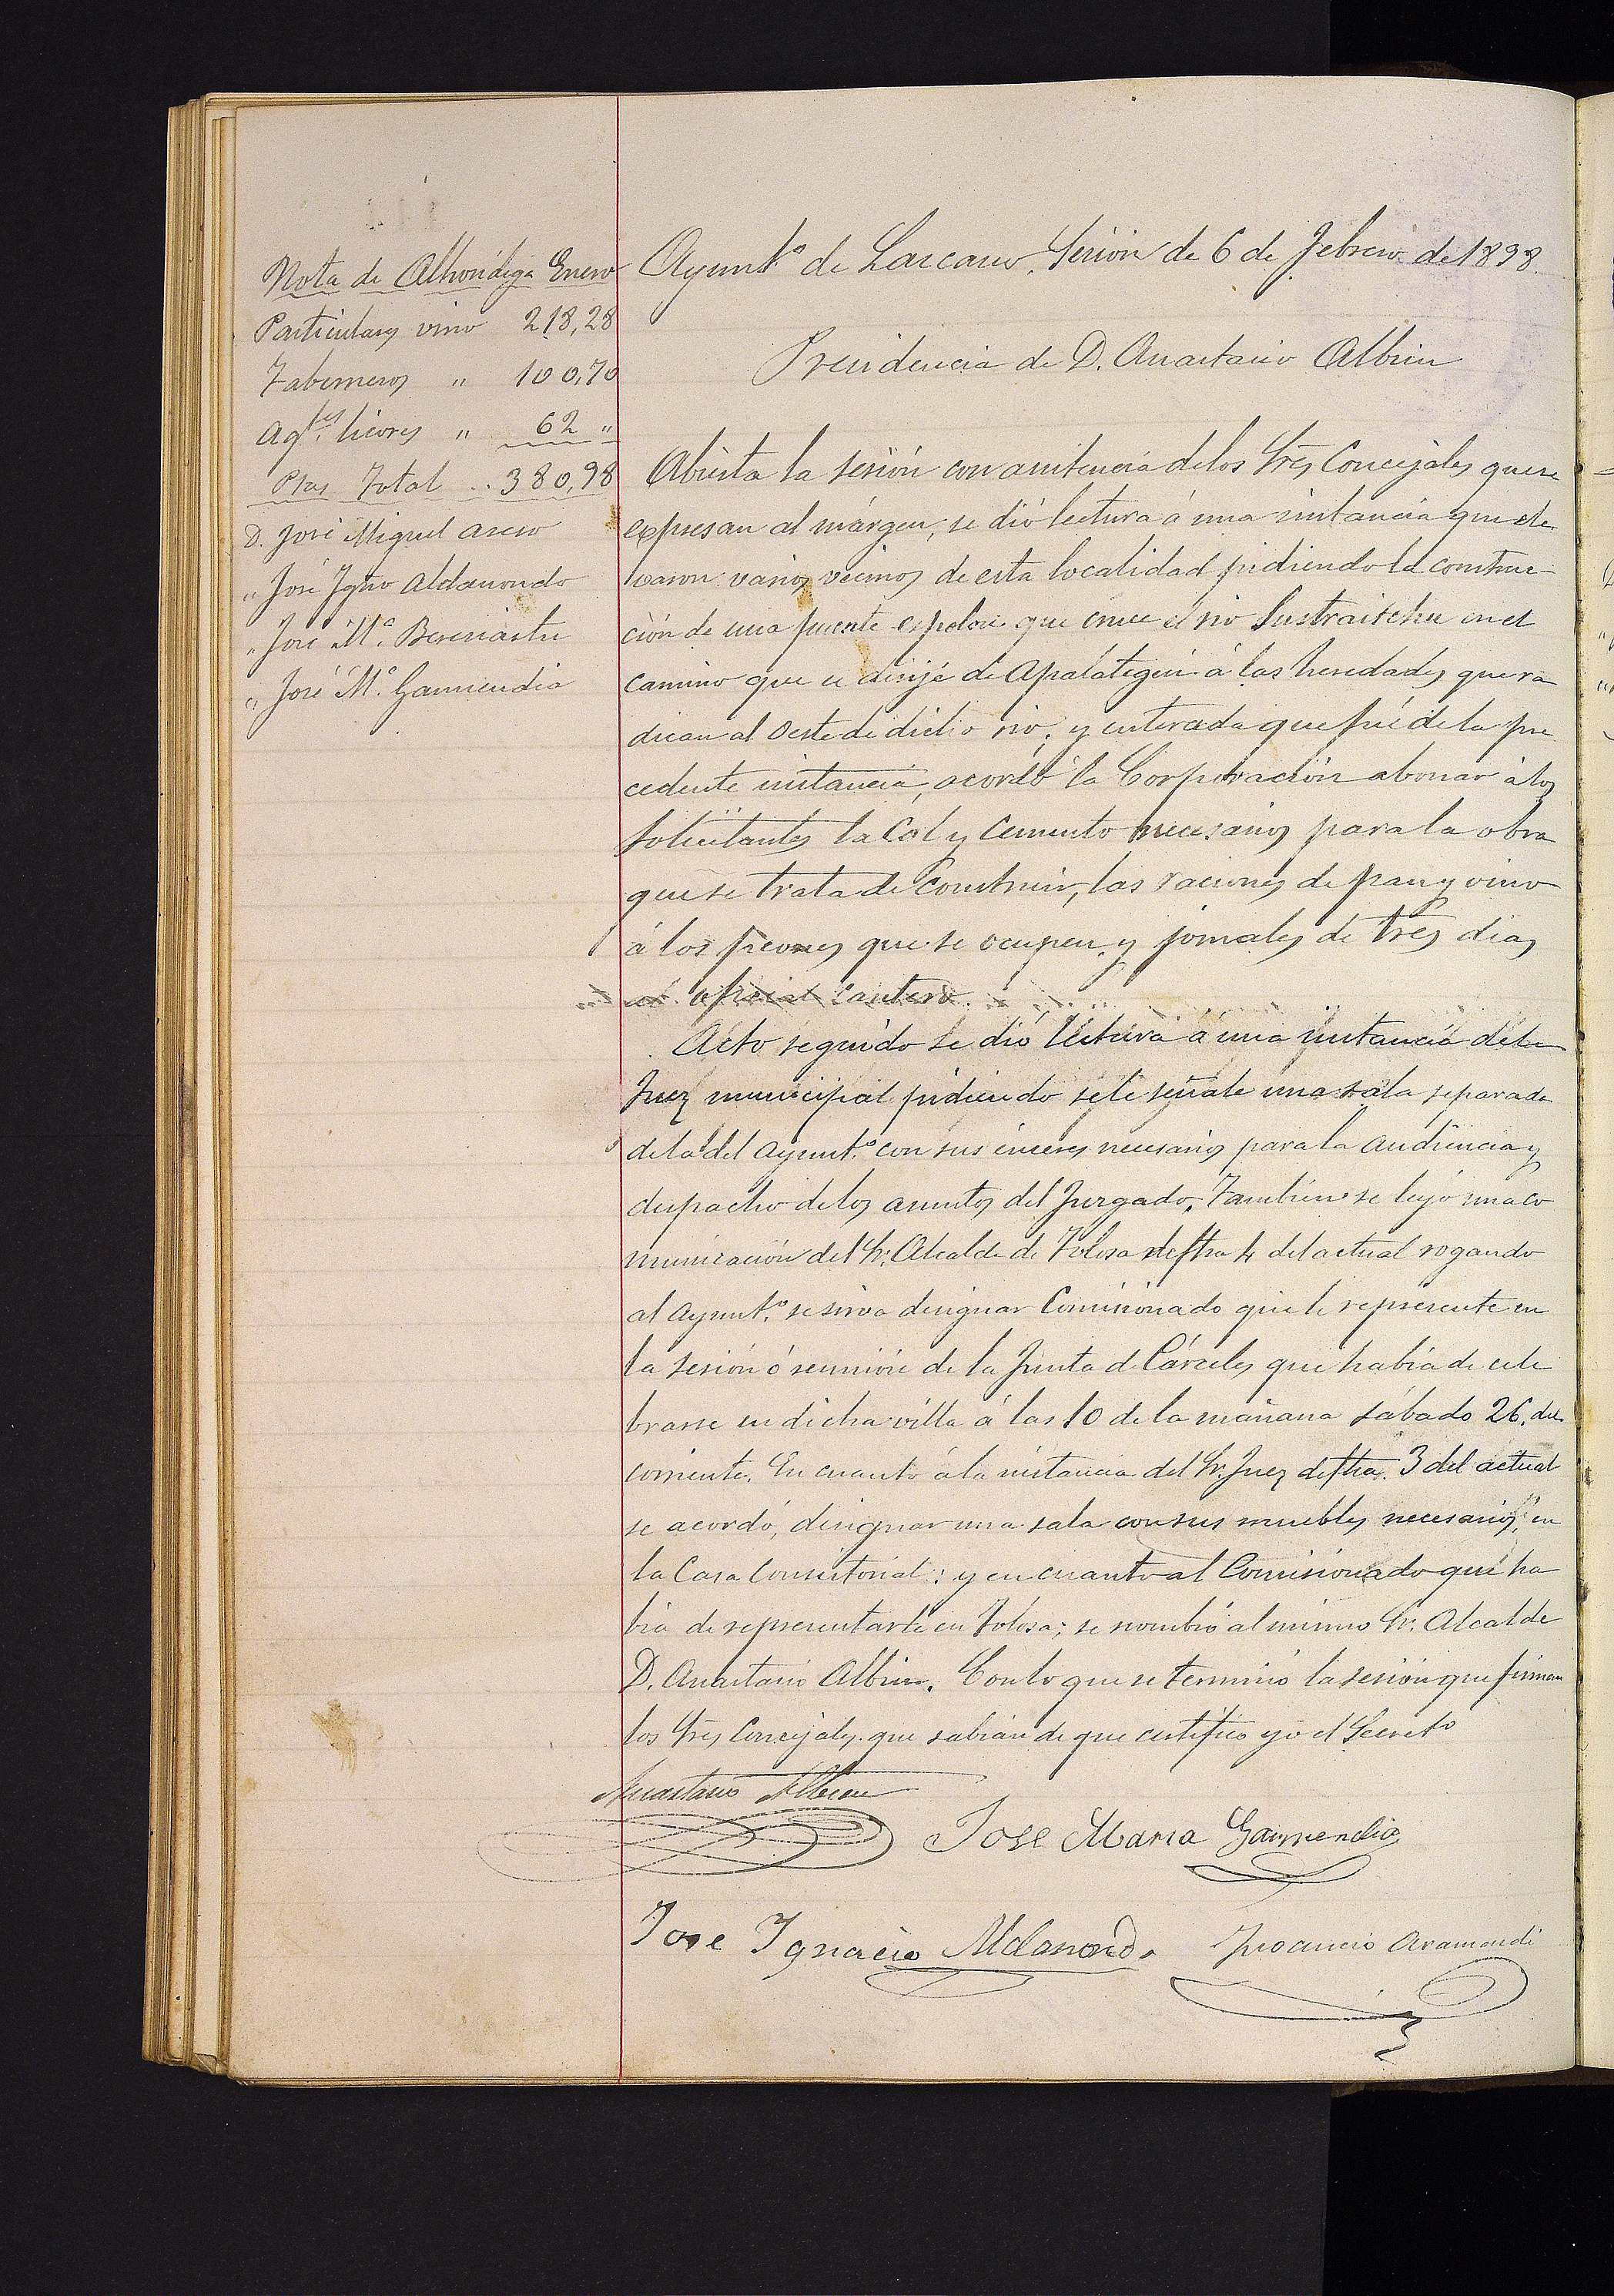 Nota de Alhóndiga Enero
Particulares vino 218,28
Taberneros " 100,70
Ag.tes licores " 62 "
Ptas Total .. 380,98
D. José Miguel Aseso
" José Igno Aldanondo
" José M.ª Bereciartu
" José M.ª Garmendia
Ayunt.º de Lazcano. Sesión de 6 de Febrero de 1898.
Presidencia de D. Anastasio Albisu
Abierta la sesión con asistencia de los Sres Concejales que se
expresan al márgen, se dió lectura á una instancia que ele
varon varios vecinos de esta localidad pidiendo la construc-
ción de una puente que cruce el rio Sustraitchu en el
camino que se dirije de Apalategui á las heredades que ra
dican al Oeste de dicho rio; y enterada que fué de la pre
cedente instancia, acordó la Corporación abonar á los
solicitantes la Cal y Cemento necesarios para la obra
que se trata de Construir, las raciones de pan y vino
á los peones que se ocupen y jornales de tres dias
al oficial cantero.
Acto seguido se dió lectura á una instancia del
Juez municipal pidiendo se le señale una sala separada
de la del Ayunt.º con sus enseres necesarios para la audiencia y
despacho de los asuntos del Juzgado. También se leyó una co
municación del Sr. Alcalde de Tolosa de fha 4 del actual rogando
al Ayunt.º se sirva designar Comisionado que le represente en
la sesión ó reunión de la Junta de Cárceles que había de cele
brarse en dicha villa á las 10 de la mañana sábado 26. del
corriente. En cuanto á la instancia del Sr. Juez de fha. 3 del actual
se acordó, designar una sala con sus muebles necesarios, en
la Casa Consistorial: y en cuanto al Comisionado que ha
bia de representarle en Tolosa; se nombró al mismo Sr. Alcalde
D. Anastasio Albisu. Con lo que se terminó la sesión que firman
los Sres Concejales que sabian de que certifico yo el Secret.º
Anastasio Albisu
Jose Maria Garmendia
Jose Ignacio Aldanondo
Aramendi